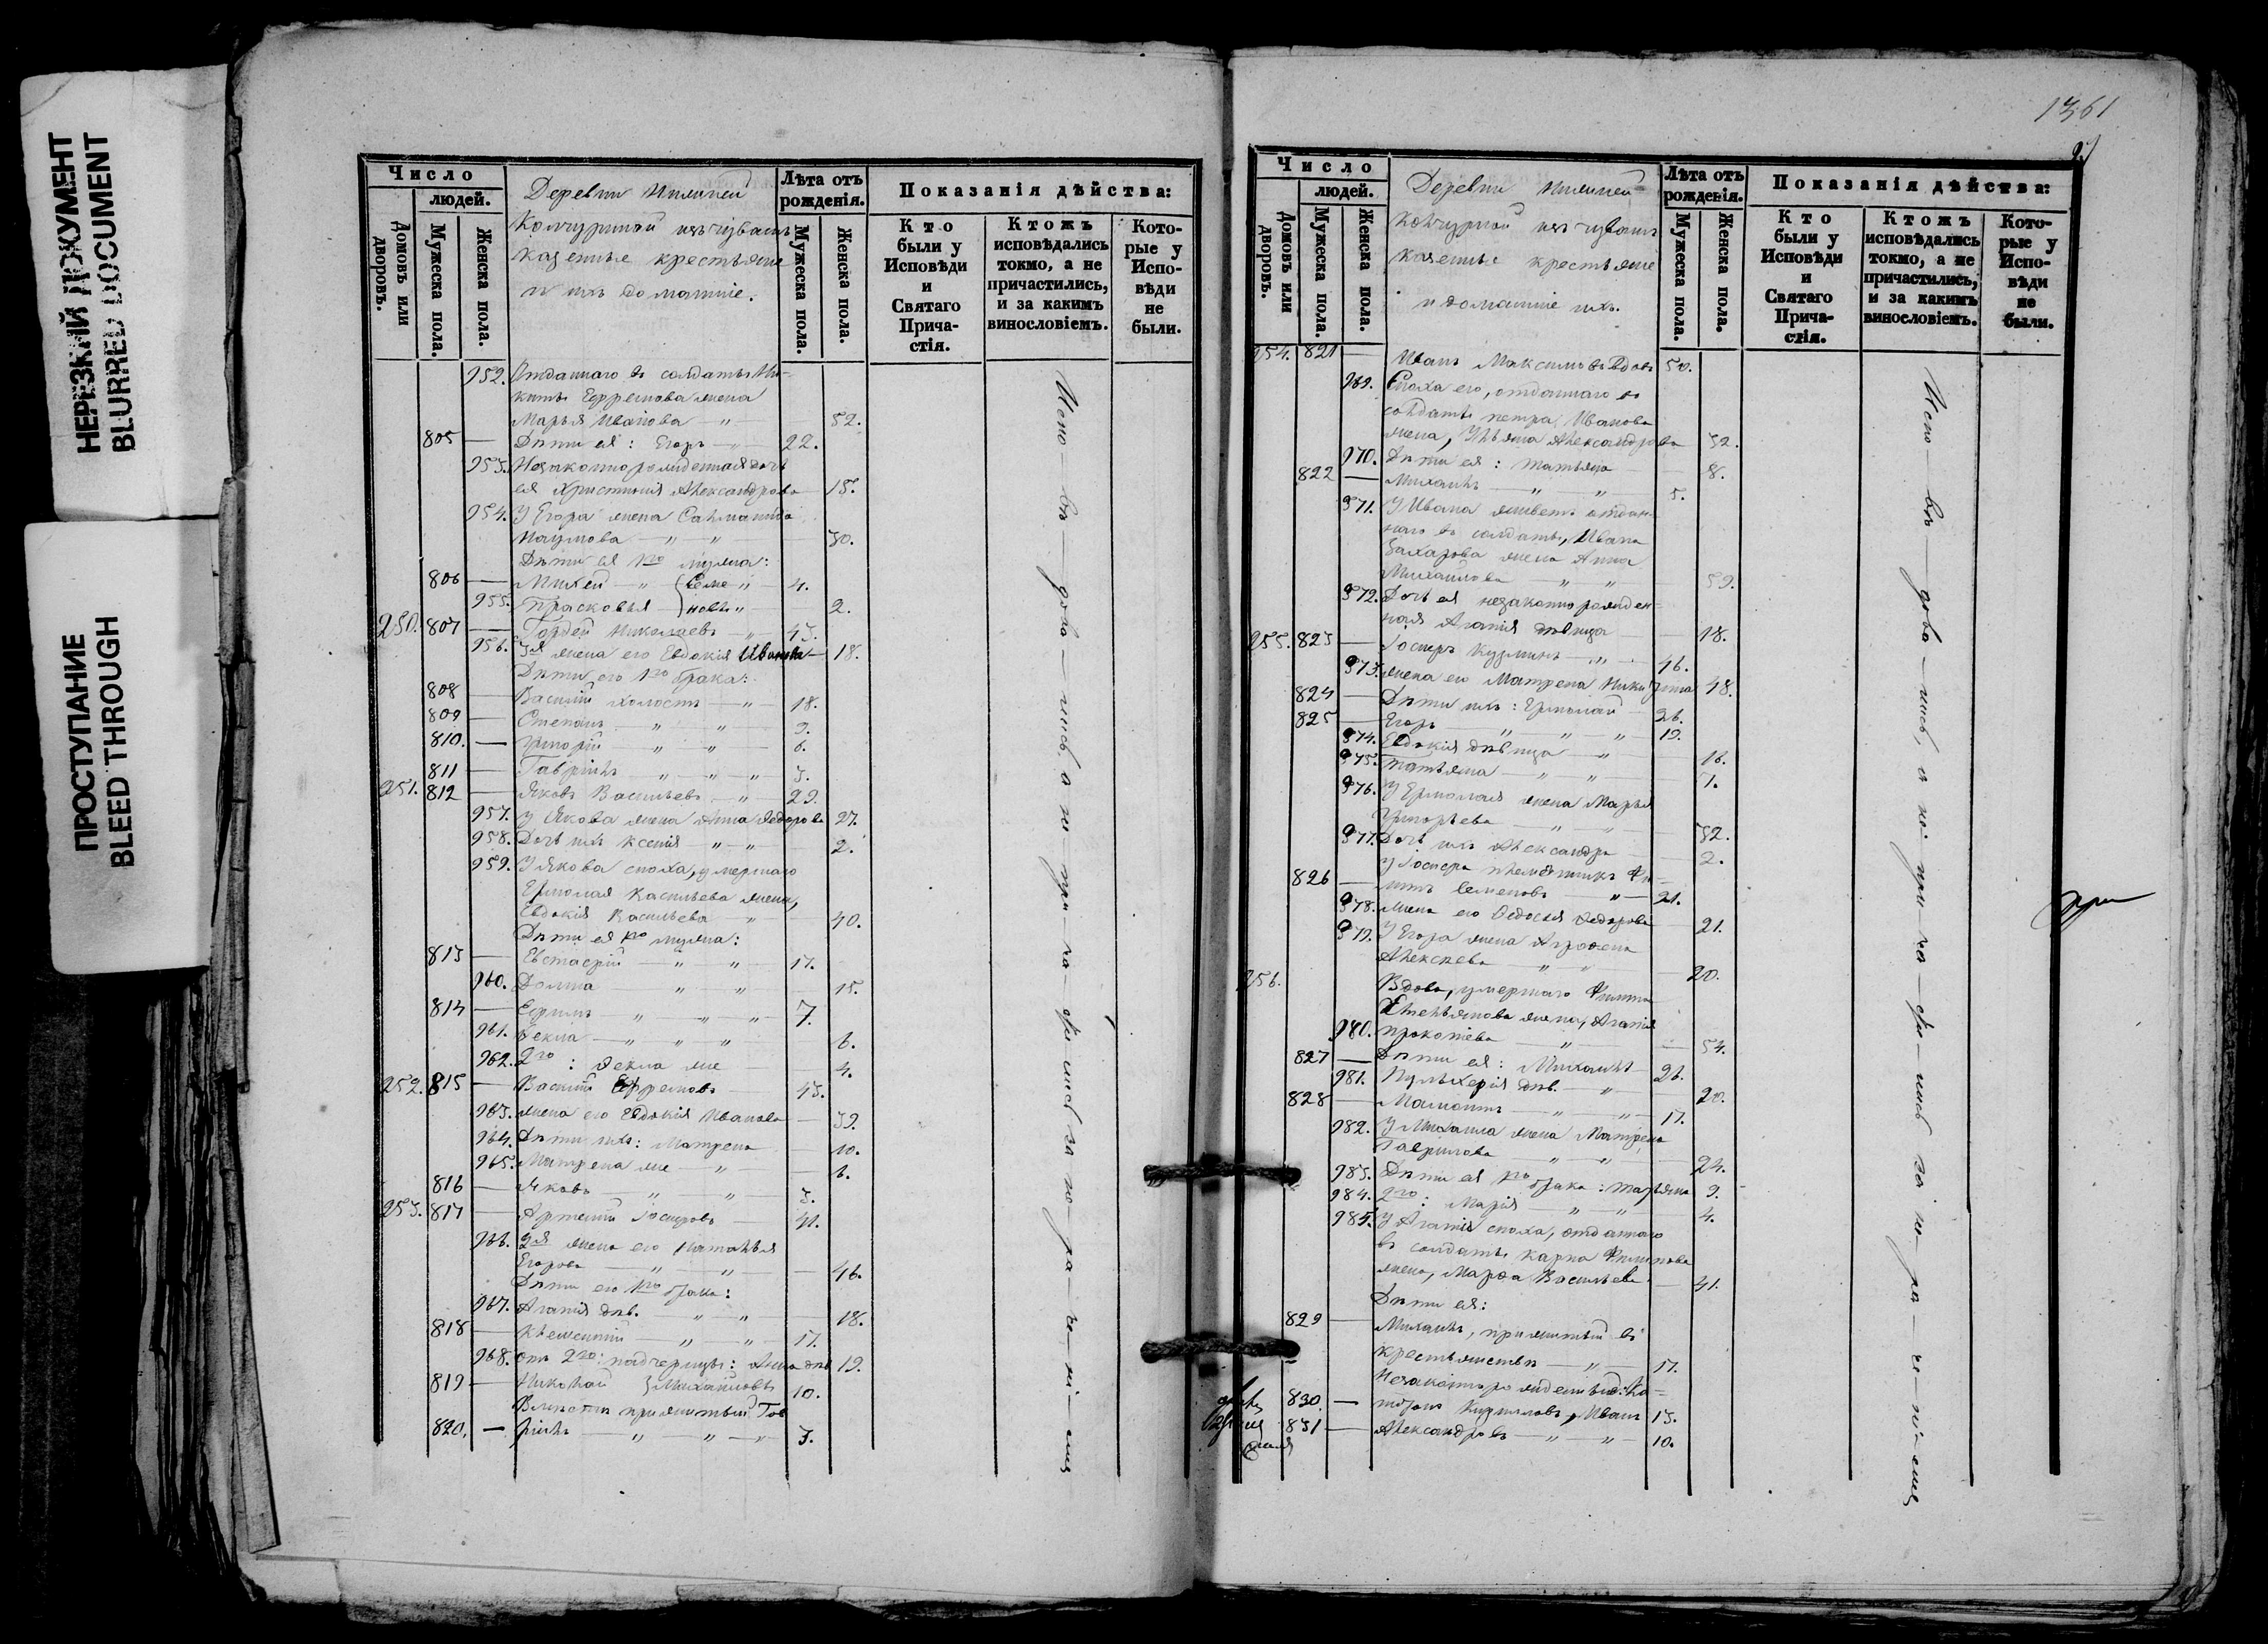 НЕРЕЗКИЙ ДОКУМЕНТ
BLURRED DOCUMENT
ПРОСТУПАНИЕ
BLEED THROUGH
Число
людей.
Домовъ или дворовъ.
Мужеска пола.
Женска пола.
Деревни
изъ чувашъ
казенные крестьяне
и ихъ домашніе.
Лѣта отъ рожденія.
Мужеска пола.
Женска пола.
Показанія дѣйства:
Кто были у Исповѣди и Святаго Прича-стія.
Ктожъ исповѣдались токмо, а не причастились, и за какимъ винословіемъ.
Кото-рые у Испо-вѣди не были.
952. Отданнаго въ солдаты Ни-
киты Ефремова жена
Марья Иванова — 52.
805 — Дѣти ея: Егоръ — 22.
953. Незаконнорожденная дочь
ея Христинія Александрова — 15.
954. У Егора жена
Наумова — 30.
Дѣти ея 1го мужа:
806 — Михей — Семе — 4.
955. Прасковья — новы — 2.
250. 807 — Гордей Николаевъ — 43.
956. жена его Евдокія Иванова — 18.
Дѣти его 1го брака:
808 — Василій холостъ — 18.
809 — Степанъ — 9.
810. — Григорій — 6.
811 — Гавріилъ — 3.
251. 812 — Яковъ Васильевъ — 29.
957. У Якова жена Анна Ѳедорова 27.
958. Дочь ихъ Ксенія — 2.
959. У Якова сноха, умершаго
Ермолая Васильева жена,
Евдокія Васильева — 40.
Дѣти ея 1го мужа:
813 — Евстафій — 17.
960. Домна — 15.
814 — Ефимъ — 7.
961. Ѳекла — 6.
962. 2го: Ѳекла же — 4.
252. 815 — Василій Ефремовъ — 43.
963. жена его Евдокія Иванова — 39.
964. Дѣти ихъ: Матрена — 10.
965. Матрена же — 6.
816 — Яковъ — 3.
253. 817 — Артемій — 41.
966. 2я жена его Наталья
Егорова — 46.
Дѣти его 1го брака:
967. Агапія дѣв. — 18.
818 — Климентій — 17.
968. отъ 2го: падчерицы: Анна дѣв. 19.
819 — Николай Михайловъ 10.
Вмѣстѣ прижитый Гав
820. — ріилъ — 3.
Испо-вѣ-дова-лись, а не при-ча-сти-лись за не-ра-че-ні-емъ
1361
Число
людей.
Домовъ или дворовъ.
Мужеска пола.
Женска пола.
Деревни
изъ чувашъ
казенные крестьяне
и домашніе ихъ.
Лѣта отъ рожденія.
Мужеска пола.
Женска пола.
Показанія дѣйства:
Кто были у Исповѣди и Святаго Прича-стія.
Ктожъ исповѣдались токмо, а не причастились, и за какимъ винословіемъ.
Кото-рые у Испо-вѣди не были.
254. 821 — Иванъ Максимовъ вдовъ 50.
969. Сноха его, отданнаго въ
солдаты Петра Иванова
жена, Ульяна Александрова 32.
970. Дѣти ея: Татьяна — 8.
822 — Михаилъ — 5.
971. У Ивана живетъ отдан-
наго въ солдаты, Ивана
Захарова жена Анна
Михайлова — 59.
972. Дочь ея незаконнорожден-
ная Агапія дѣвица — 18.
255. 823 — Кузминъ — 46.
973. жена его Матрена 48.
824 — Дѣти ихъ: Ермолай 26.
825 — Егоръ — 19.
974. Евдокія дѣвица — 16.
975. Татьяна — 7.
976. У Ермолая жена Марья
Григорьева — 32.
977. Дочь ихъ Александра — 2.
племянникъ Фи-
826 — липъ Семеновъ — 21.
978. жена его Ѳедосья Ѳедорова 21.
979. У Егора жена
Алексѣева — 20.
256. Вдова, умершаго Филипа
Емельянова жена, Агапія
980. Прокопіева — 54.
827 — Дѣти ея: Михаилъ 26.
981. Пульхерія дѣв. — 20.
828 — Мамонтъ — 17.
982. У Михаила жена Матрена
Гаврилова — 24.
983. Дѣти ея 1го брака: 9.
984. 2го: Марія — 4.
985. У Агапіи сноха, отданнаго
въ солдаты Карпа Филипова
жена, Марѳа Васильева — 41.
Дѣти ея:
829 — Михаилъ, прижитый въ
крестьянствѣ — 17.
Незаконнорожденные:
830. — Кириловъ, Иванъ 13.
831 — Александровъ — 10.
Испо-вѣ-дова-лись, а не при-ча-сти-лись за не-ра-че-ні-емъ